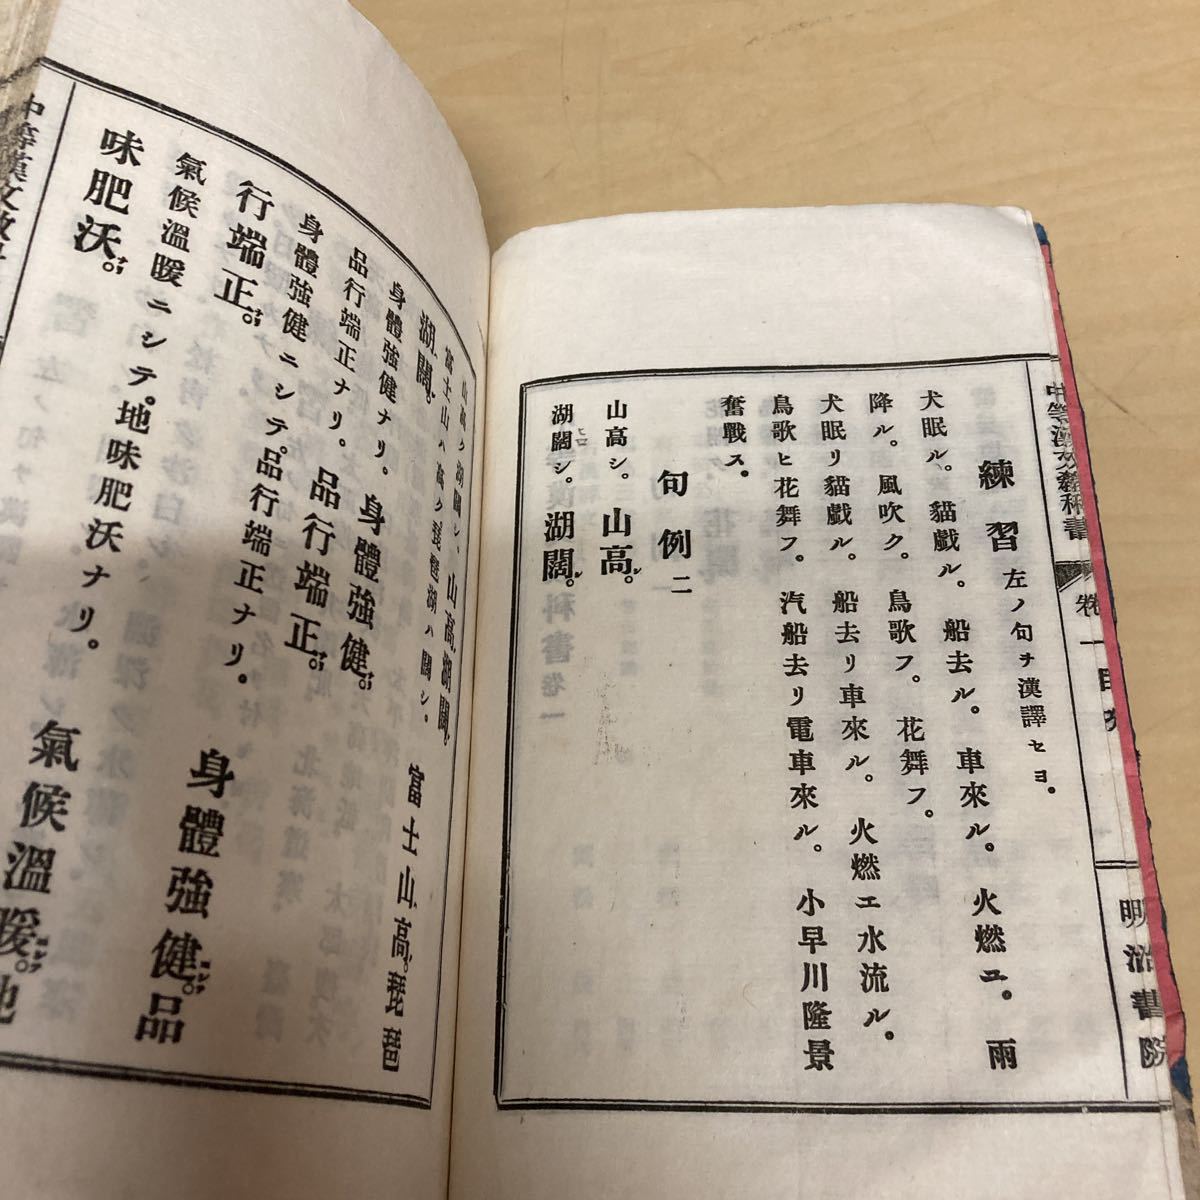 中等漢文敎科書 卷一
明治書院
練習 左ノ句ヲ漢譯セヨ。
犬眠ル。貓戲ル。船去ル。車來ル。火燃ユ。雨
降ル。風吹ク。鳥歌フ。花舞フ。
犬眠リ貓戲ル。船去リ車來ル。火燃エ水流ル。
鳥歌ヒ花舞フ。汽船去リ電車來ル。小早川隆景
奮戰ス。
句例二
山高シ。山高。シ
湖闊シ。ヒロ 湖闊。シ
山高ク湖闊シ。山高ク湖闊。シ
富士山ハ高ク琵琶湖ハ闊シ。富士山高。琵琶
湖闊。シ
身體強健ナリ。身體強健。ナリ
品行端正ナリ。品行端正。ナリ
身體強健ニシテ。品行端正ナリ。身體強健。ニシテ品
行端正。ナリ
氣候溫暖ニシテ。地味肥沃ナリ。氣候溫暖。ニシテ地
味肥沃。ナリ
中等漢文敎